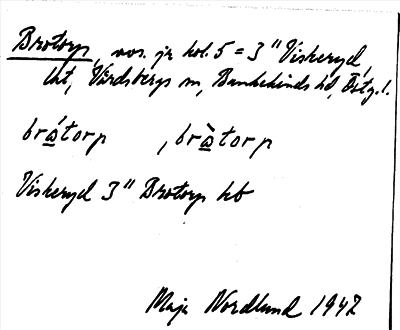 Brotorp, nos. jr kol. 5 = 3" Viskeryd,
Vårdsbergs sn, Bankekinds hd, Östg. l.
brá̲torp , brà̲torp
Viskeryd 3" Brotorp hb
Maja Nordlund 1942